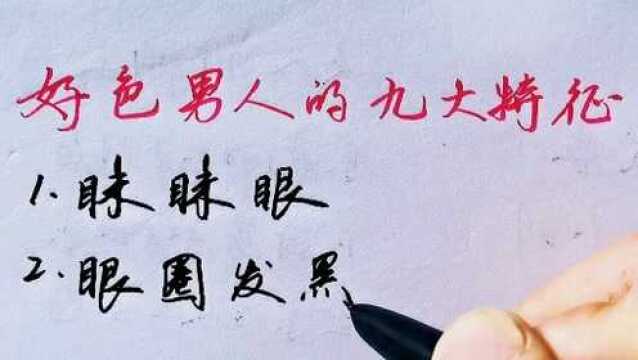 好色男人的九大特征
1.眯眯眼
2.眼圈发黑